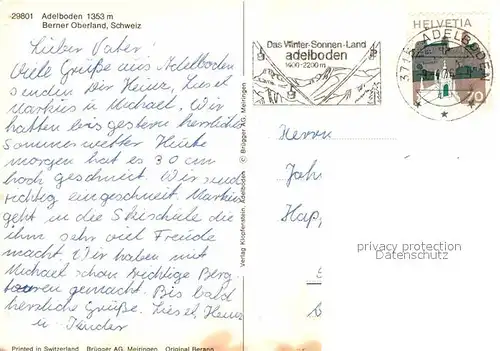 -29801 Adelboden 1353 m
Berner Oberland, Schweiz
Lieber Vater,
Viele Grüße aus Adelboden
senden Dir Heinz, Liesel
Markus u Michael. Wir
hatten bis gestern herrliches
Sommerwetter Heute
morgen hat es 30 cm
hoch geschneit. Wir sind
richtig eingeschneit. Markus
geht in die Skischule die
ihm sehr viel Freude
macht. Wir haben mit
Michael schon richtige Berg
touren gemacht. Bis bald
herzliche Grüße. Liesel, Heinz
u Kinder
Printed in Switzerland Brügger AG, Meiringen Original Berann
Verlag Klopfenstein, Adelboden © Brügger AG, Meiringen
Das Winter-Sonnen-Land
adelboden
1400-2200 m
HELVETIA
3715 ADELBODEN
70
Herrn
Jah
Hap
privacy protection
www.ansichtskarten-center.de